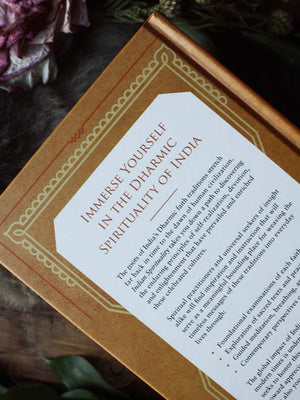 IMMERSE YOURSELF
IN THE DHARMIC
SPIRITUALITY OF INDIA
The roots of India's Dharmic faith traditions stretch
far back in time to the dawn of human civilization.
Indian Spirituality takes you down a path to discovering
the enduring principles of self-realization, devotion,
and enlightenment that have prevailed and enriched
these celebrated cultures.
Spiritual practitioners and universal seekers of insight
alike will find inspiration and instruction that will
serve as a meaningful bounding place for weaving the
timeless messages of these traditions into everyday
lives through:
Foundational examinations of each faith
Exploration of sacred texts and
Guided meditation, breathing,
Contemporary perspectives
The global impact of
modern times is
seeks to honor this
ward
also